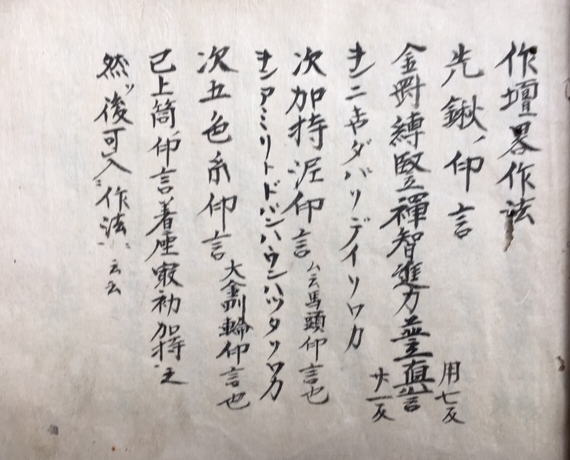 作壇畧作法
先鍬ノ印言 用七反
金剛縛堅禅智進力並立真言 廿一反
オンニキダバリデイソワカ
次加持泥印言 ムム云馬頭印言也
オンアミリトドバンバウンハツタソワカ
次五色糸印言 大金剛輪印言也
已上箇印言着座最初加持之
然ッ後可入作法 云云